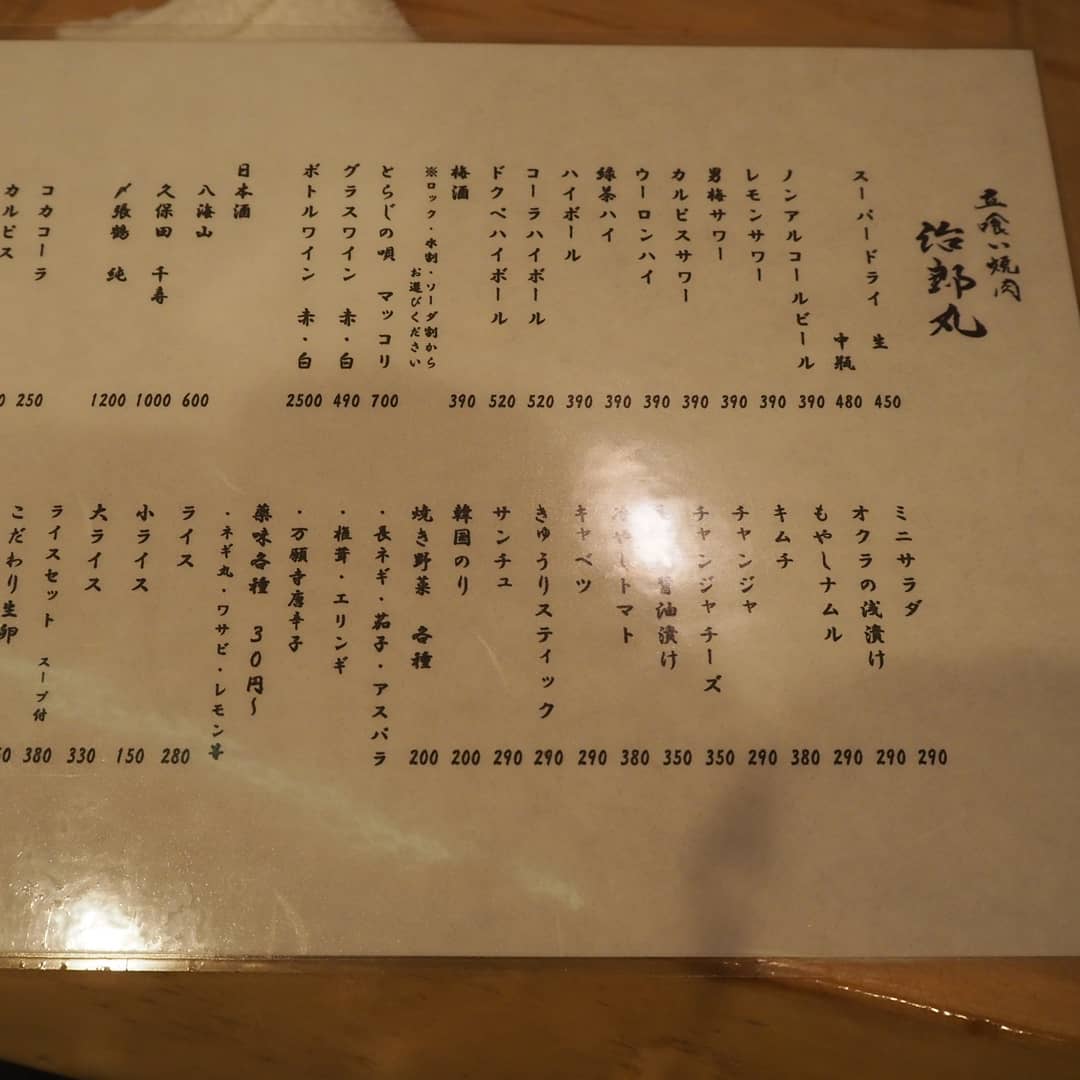 立喰い焼肉
治郎丸
スーパードライ 生 450
中瓶 480
ノンアルコールビール 390
レモンサワー 390
男梅サワー 390
カルピスサワー 390
ウーロンハイ 390
緑茶ハイ 390
ハイボール 390
コーラハイボール 520
ドクペハイボール 520
梅酒 390
※ロック・水割・ソーダ割から
お選びください
とらじの唄 マッコリ 700
グラスワイン 赤・白 490
ボトルワイン 赤・白 2500
日本酒
八海山 600
久保田 千寿 1000
〆張鶴 純 1200
コカコーラ 250
カルピス
ミニサラダ 290
オクラの浅漬け 290
もやしナムル 290
キムチ 380
チャンジャ 290
チャンジャチーズ 350
醤油漬け 350
冷やしトマト 380
キャベツ 290
きゅうりスティック 290
サンチュ 290
韓国のり 200
焼き野菜 各種 200
・長ネギ・茄子・アスパラ
・椎茸・エリンギ
・万願寺唐辛子
薬味各種 30円〜
・ネギ丸・ワサビ・レモン等
ライス 280
小ライス 150
大ライス 330
ライスセット スープ付 380
こだわり生卵